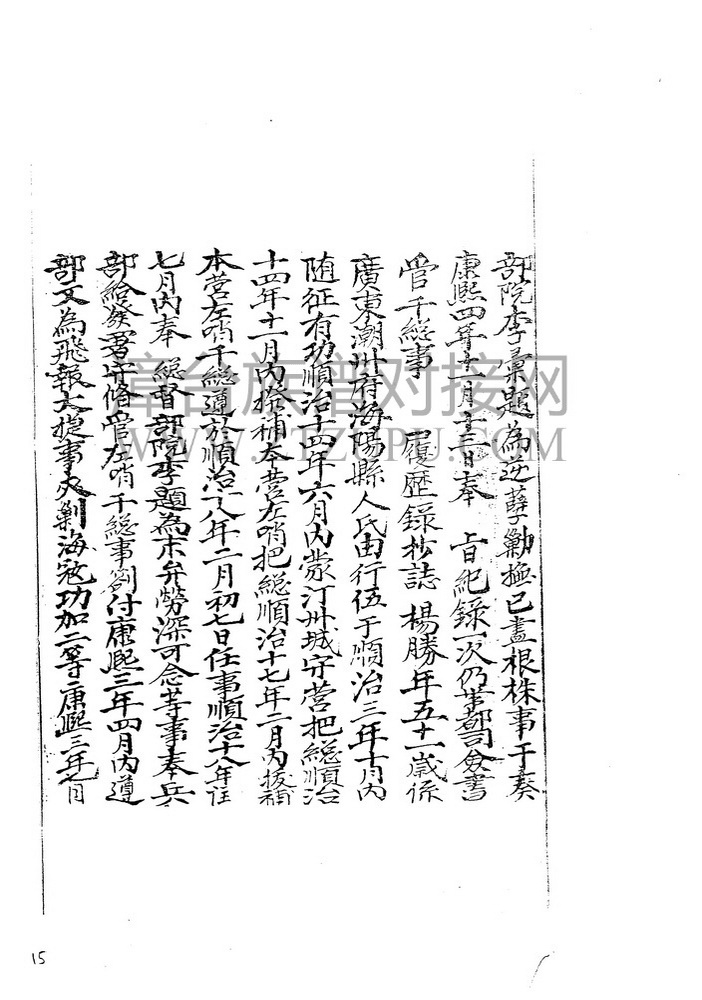 部院李彙題為逆孽勦撫已盡根株事于奏
康熙四年十一月十三日奉 上旨紀錄一次仍帶都司僉書
管千総事 履歷錄抄誌 楊勝年五十一歲係
廣東潮州府海陽縣人氏由行伍于順治三年十月內
随征有功順治十四年六月內蒙汀州城守营把総順治
十四年十一月內拾補本营左哨把総順治十七年二月內拔補
本营左哨千総遵於順治十八年二月初七日任事順治十八年
七月內奉 総督部院李題為末弁勞深可念等事奉兵
部給發署守俻管左哨千総事劄付康熙三年四月內遵
部文為飛報大捷事夾剿海寇功加二等康熙三年七月
章台族谱对接网
WWW.TZUPU.COM
15